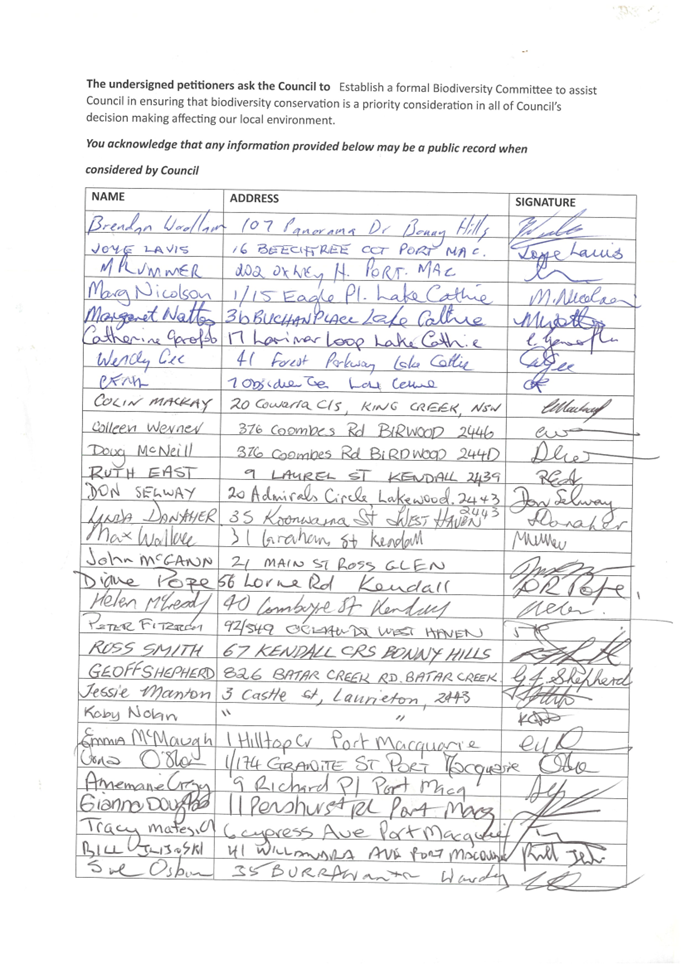 The undersigned petitioners ask the Council to Establish a formal Biodiversity Committee to assist
Council in ensuring that biodiversity conservation is a priority consideration in all of Council's
decision making affecting our local environment.
You acknowledge that any information provided below may be a public record when
considered by Council
NAME ADDRESS SIGNATURE
Brendan Woollam 107 Panorama Dr Bonny Hills
JOYE LAVIS 16 BEECHTREE CCT PORT MAC. Joye Lavis
202 OXLEY H. PORT. MAC
Marg Nicolson 1/15 Eagle Pl. Lake Cathie M. Nicolson
Margaret Nattos 36 BUCHAN PLACE Lake Cathie
Catherine 17 Lorimar Loop Lake Cathie
Wendy Gee 41 Forest Parkway Lake Cathie
COLIN MACKAY 20 Cowarra Cls, KING CREEK, NSW
Colleen Wenner 376 Coombes Rd BIRWOOD 2446
Doug McNeill 376 Coombes Rd BIRDWOOD
RUTH EAST 9 LAUREL ST KENDALL 2439
DON SELWAY 20 Admirals Circle Lakewood, 2443 Don Selway
LYNDA DANAHER 35 Koonwarra St WEST HAVEN 2443 Danaher
Max Wallace 31 Graham St Kendall
John McGANN 21 MAIN ST ROSS GLEN
Diane Pope 56 Lorne Rd Kendall DR Pope
Helen McLeod 40 Comboyne St Kendall Helen
PETER 92/549 OCEAN DR WEST HAVEN
ROSS SMITH 67 KENDALL CRS BONNY HILLS
GEOFF SHEPHERD 826 BATAR CREEK RD. BATAR CREEK G.J. Shepherd
Jessie Manton 3 Castle st, Laurieton, 2443
Koby Nolan " "
Emma McMaugh 1 Hilltop Cr Port Macquarie
1/174 GRANITE ST PORT Macquarie
Annemarie 9 Richard Pl Port Macq
Gianna Douglas 11 Penshurst Pl Port Macq
Tracy 6 cypress Ave Port Macquarie
BILL 41 AVE PORT MACQUARIE
Sue Osbun 35